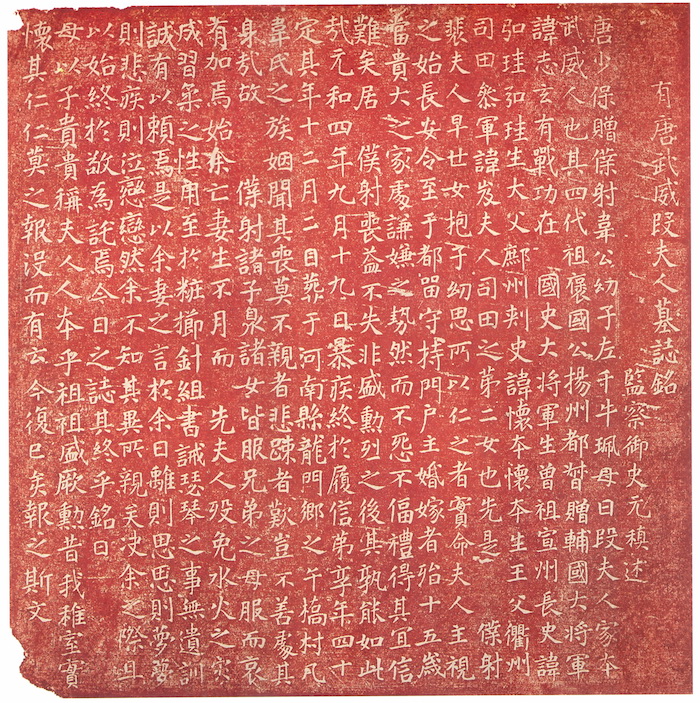 有唐武威段夫人墓誌銘
監察御史元稹述
唐少保贈僕射韋公幼子左千牛珮母曰段夫人家夲
武威人也其四代祖褒國公揚州都督贈輔國大將軍
諱志玄有戰功在 國史大將軍生曾祖宣州長史諱
弘珪弘珪生大父鄜州刾史諱懷夲懷夲生王父衢州
司田叅軍諱岌夫人司田之第二女也先是 僕射
裴夫人早世女抱子幼思所以仁之者實命夫人主視
之始長安令至于都留守持門戶主婚嫁者殆十五歲
當貴大之家處謙嫌之勢然而不怨不偪禮得其宜信
難矣居 僕射喪益不失非盛勳烈之後其孰能如此
哉元和四年九月十九日暴疾終於履信苐享年四十
定其年十二月二日葬于河南縣龍門鄉之午橋村凡
韋氏之族姻聞其喪莫不親者悲疎者歎豈不善處其
身哉故 僕射諸子泉諸女皆服兄弟之母服而哀
有加焉始余亡妻生不月而 先夫人歿免水火之災
成習柔之性用至於粧櫛針組書誡瑟琴之事無遺訓
誠有以賴焉是以余妻之言於余曰離則思思則夢夢
則悲疾則泣戀戀然余不知其異所親矣沒余之際且
以始終於敬爲託焉今日之誌其終乎銘曰
母以子貴貴稱夫人人夲乎祖祖盛厥勳昔我稚室實
懷其仁仁莫之報沒而有云今復已矣報之斯文